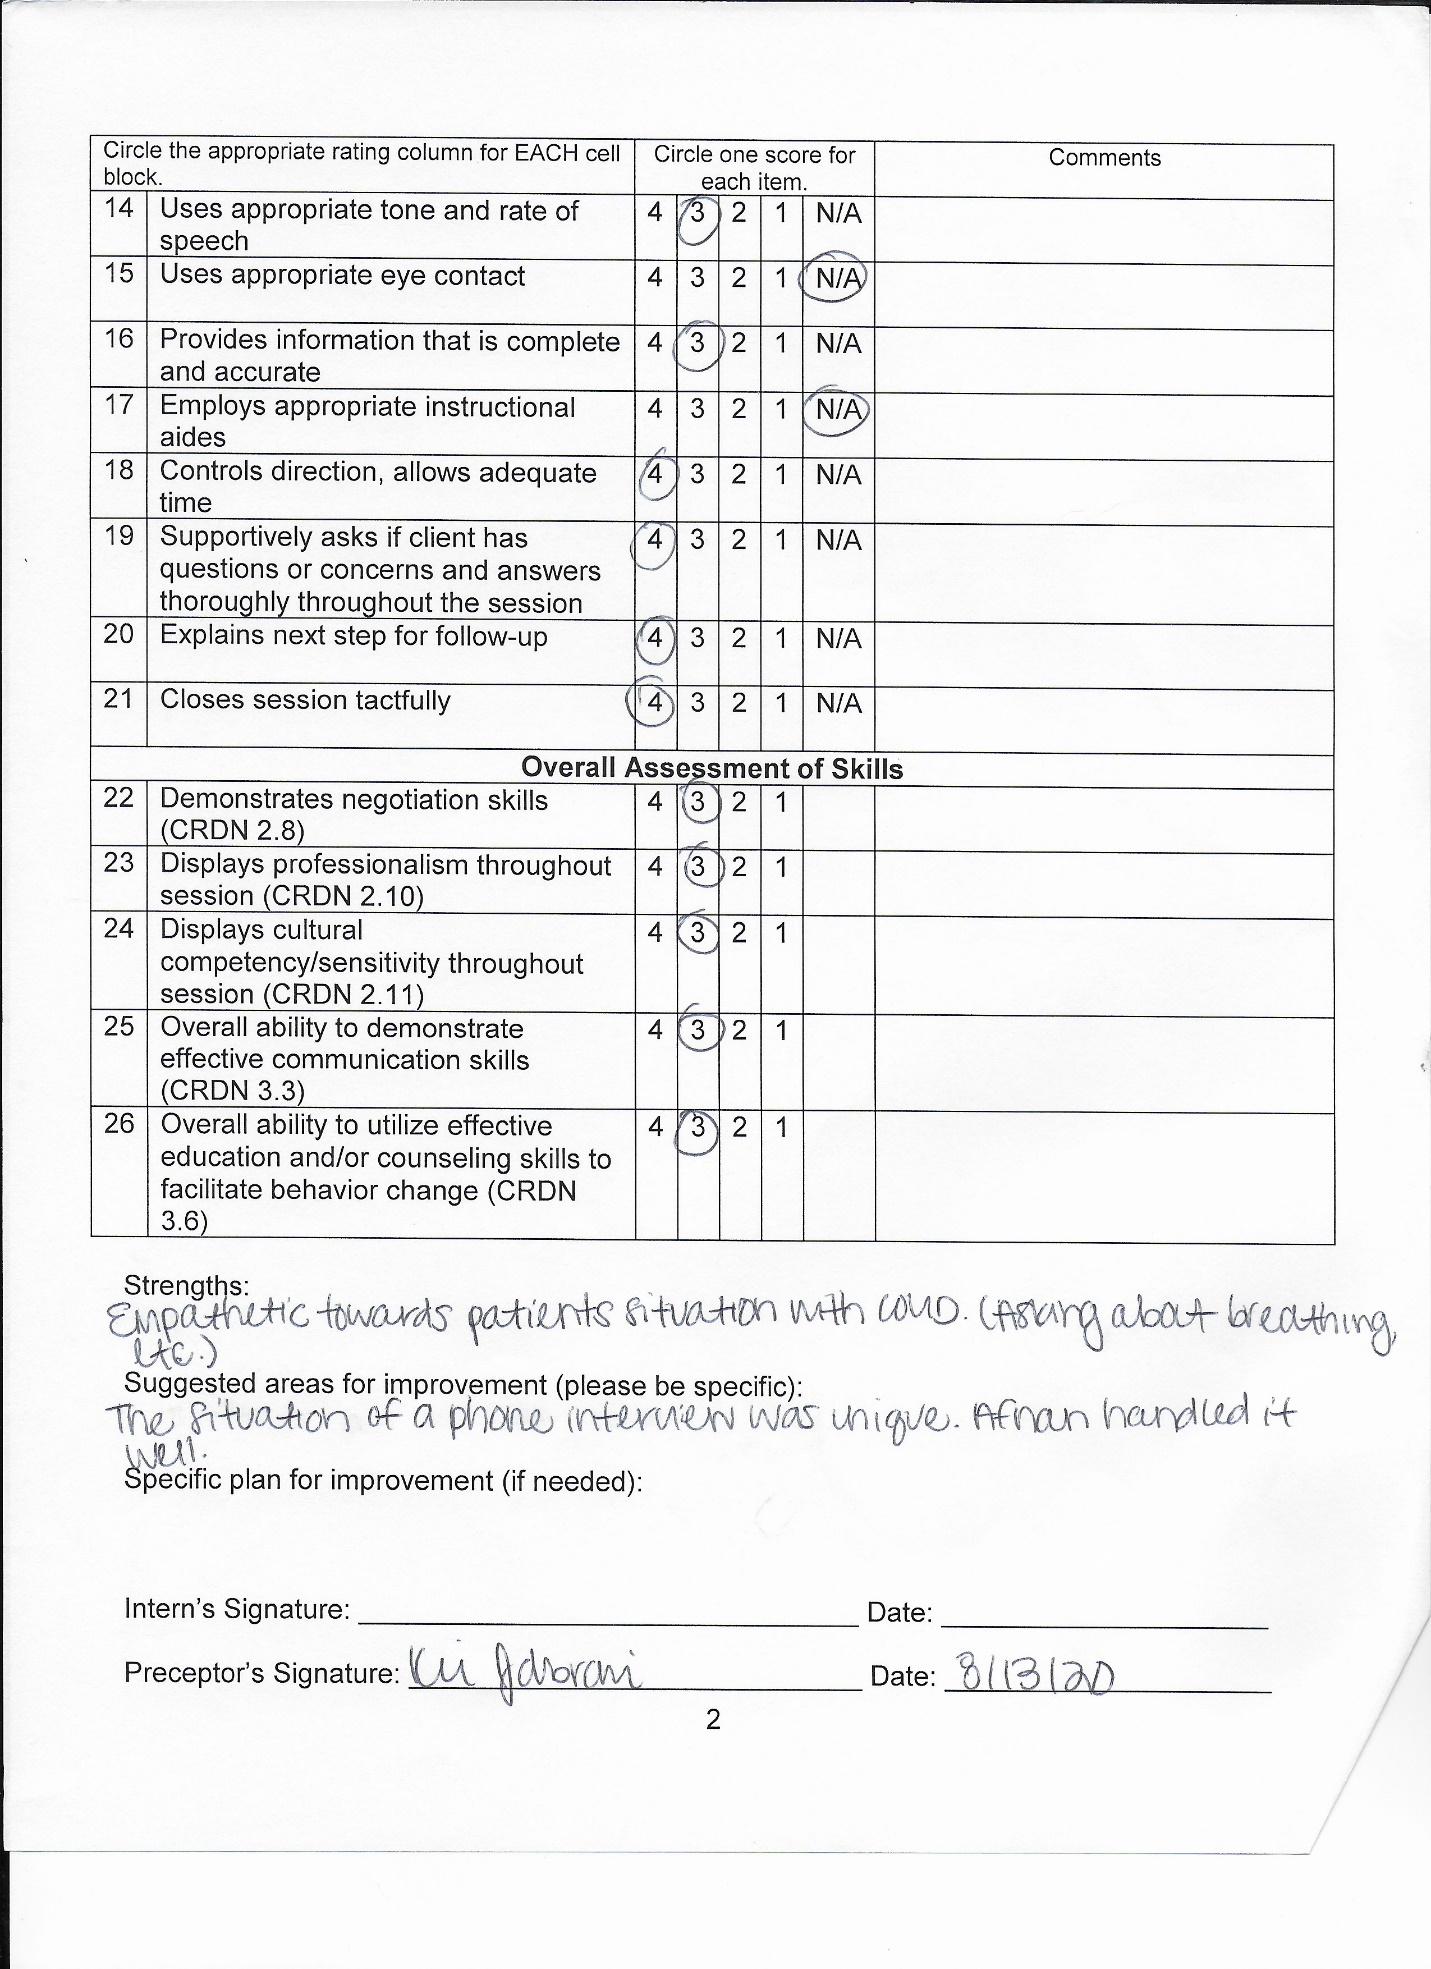 Circle the appropriate rating column for EACH cell block.
Circle one score for each item.
Comments
14 Uses appropriate tone and rate of speech 4 3 2 1 N/A
15 Uses appropriate eye contact 4 3 2 1 N/A
16 Provides information that is complete and accurate 4 3 2 1 N/A
17 Employs appropriate instructional aides 4 3 2 1 N/A
18 Controls direction, allows adequate time 4 3 2 1 N/A
19 Supportively asks if client has questions or concerns and answers thoroughly throughout the session 4 3 2 1 N/A
20 Explains next step for follow-up 4 3 2 1 N/A
21 Closes session tactfully 4 3 2 1 N/A
Overall Assessment of Skills
22 Demonstrates negotiation skills (CRDN 2.8) 4 3 2 1
23 Displays professionalism throughout session (CRDN 2.10) 4 3 2 1
24 Displays cultural competency/sensitivity throughout session (CRDN 2.11) 4 3 2 1
25 Overall ability to demonstrate effective communication skills (CRDN 3.3) 4 3 2 1
26 Overall ability to utilize effective education and/or counseling skills to facilitate behavior change (CRDN 3.6) 4 3 2 1
Strengths:
Empathetic towards patients situation with COVID. (Asking about breathing,
etc.)
Suggested areas for improvement (please be specific):
The situation of a phone interview was unique. Afnan handled it
well.
Specific plan for improvement (if needed):
Intern's Signature: Date:
Preceptor's Signature: Date: 8/13/20
2